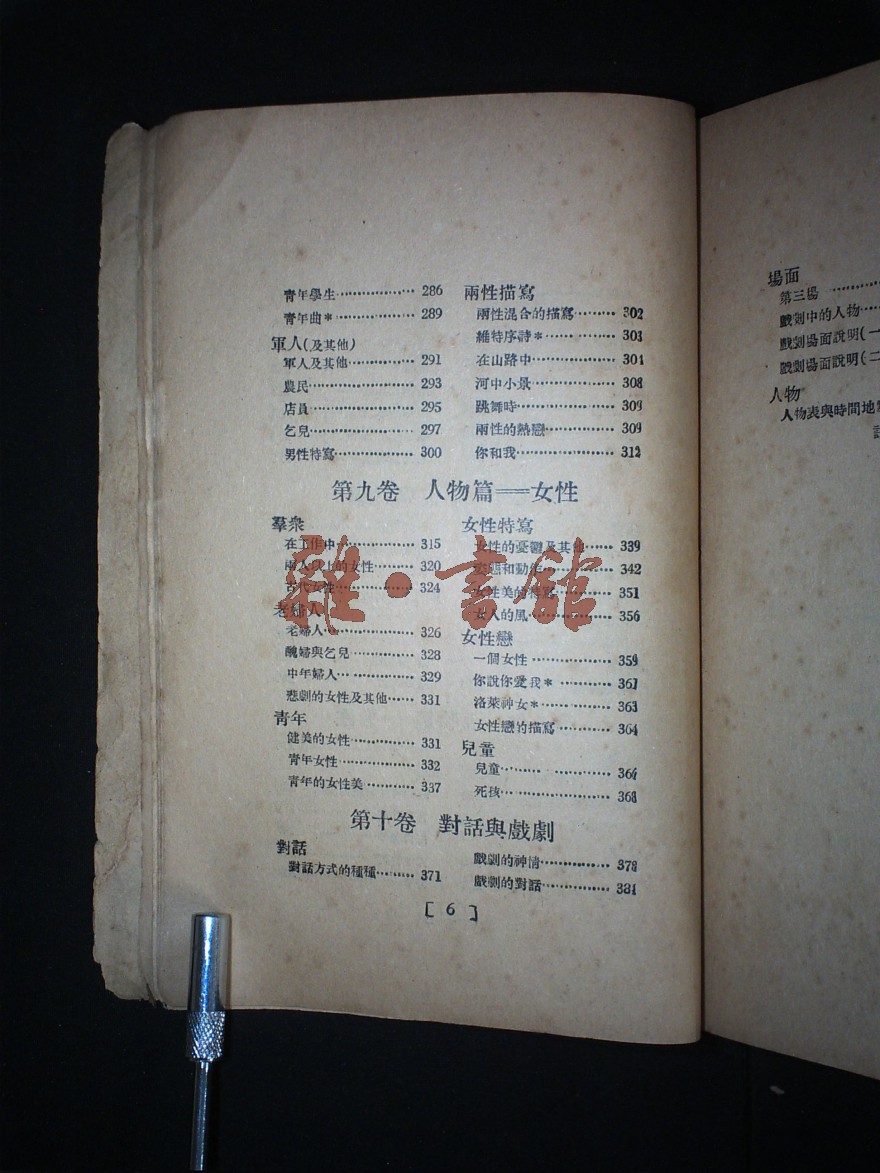 青年學生 286
青年曲* 289
軍人(及其他)
軍人及其他 291
農民 293
店員 295
乞兒 297
男性特寫 300
兩性描寫
兩性混合的描寫 302
維特序詩* 303
在山路中 304
河中小景 308
跳舞時 309
兩性的熱戀 309
你和我 312
第九卷 人物篇——女性
羣衆
在工作中 315
兩人以上的女性 320
古代女性 324
老婦人
老婦人 326
醜婦與乞兒 328
中年婦人 329
悲劇的女性及其他 331
青年
健美的女性 331
青年女性 332
青年的女性美 337
女性特寫
女性的憂鬱及其他 339
姿態和動作 342
女性美的特寫 351
女人的風 356
女性戀
一個女性 359
你說你愛我* 361
洛萊神女* 363
女性戀的描寫 364
兒童
兒童 366
死孩 368
第十卷 對話與戲劇
對話
對話方式的種種 371
戲劇的神情 378
戲劇的對話 381
[6]
雜·書館
場面
第三場
戲劇中的人物
戲劇場面說明(一
戲劇場面說明(二
人物
人物表與時間地